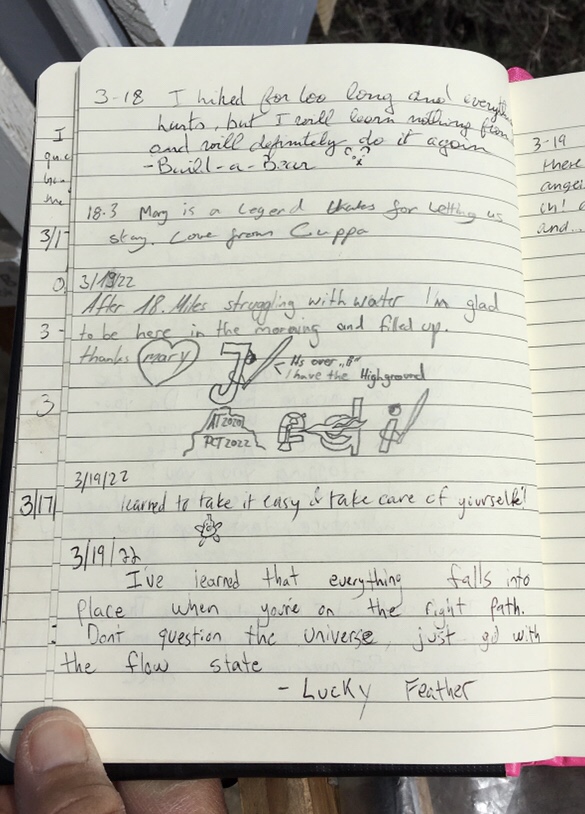 3-18 I hiked for too long and everyth
hurts, but I will learn nothing from
and will definitely do it again
-Build-a-Bear
18.3 Mary is a Legend thanks for letting us
stay. Love from Cuppa
3/19/22
After 18. Miles struggling with water I'm glad
to be here in the morning and filled up.
thanks mary
It's over "B"
I have the Highground
AT2020
PCT2022
3/19/22
learned to take it easy & take care of yourselfe!
3/19/22
I've learned that everything falls into
place when you're on the right path.
Dont question the universe, just go with
the flow state
- Lucky Feather
I
3/1
0
3-
3
3/17
3-19
there
angel
in!
and...